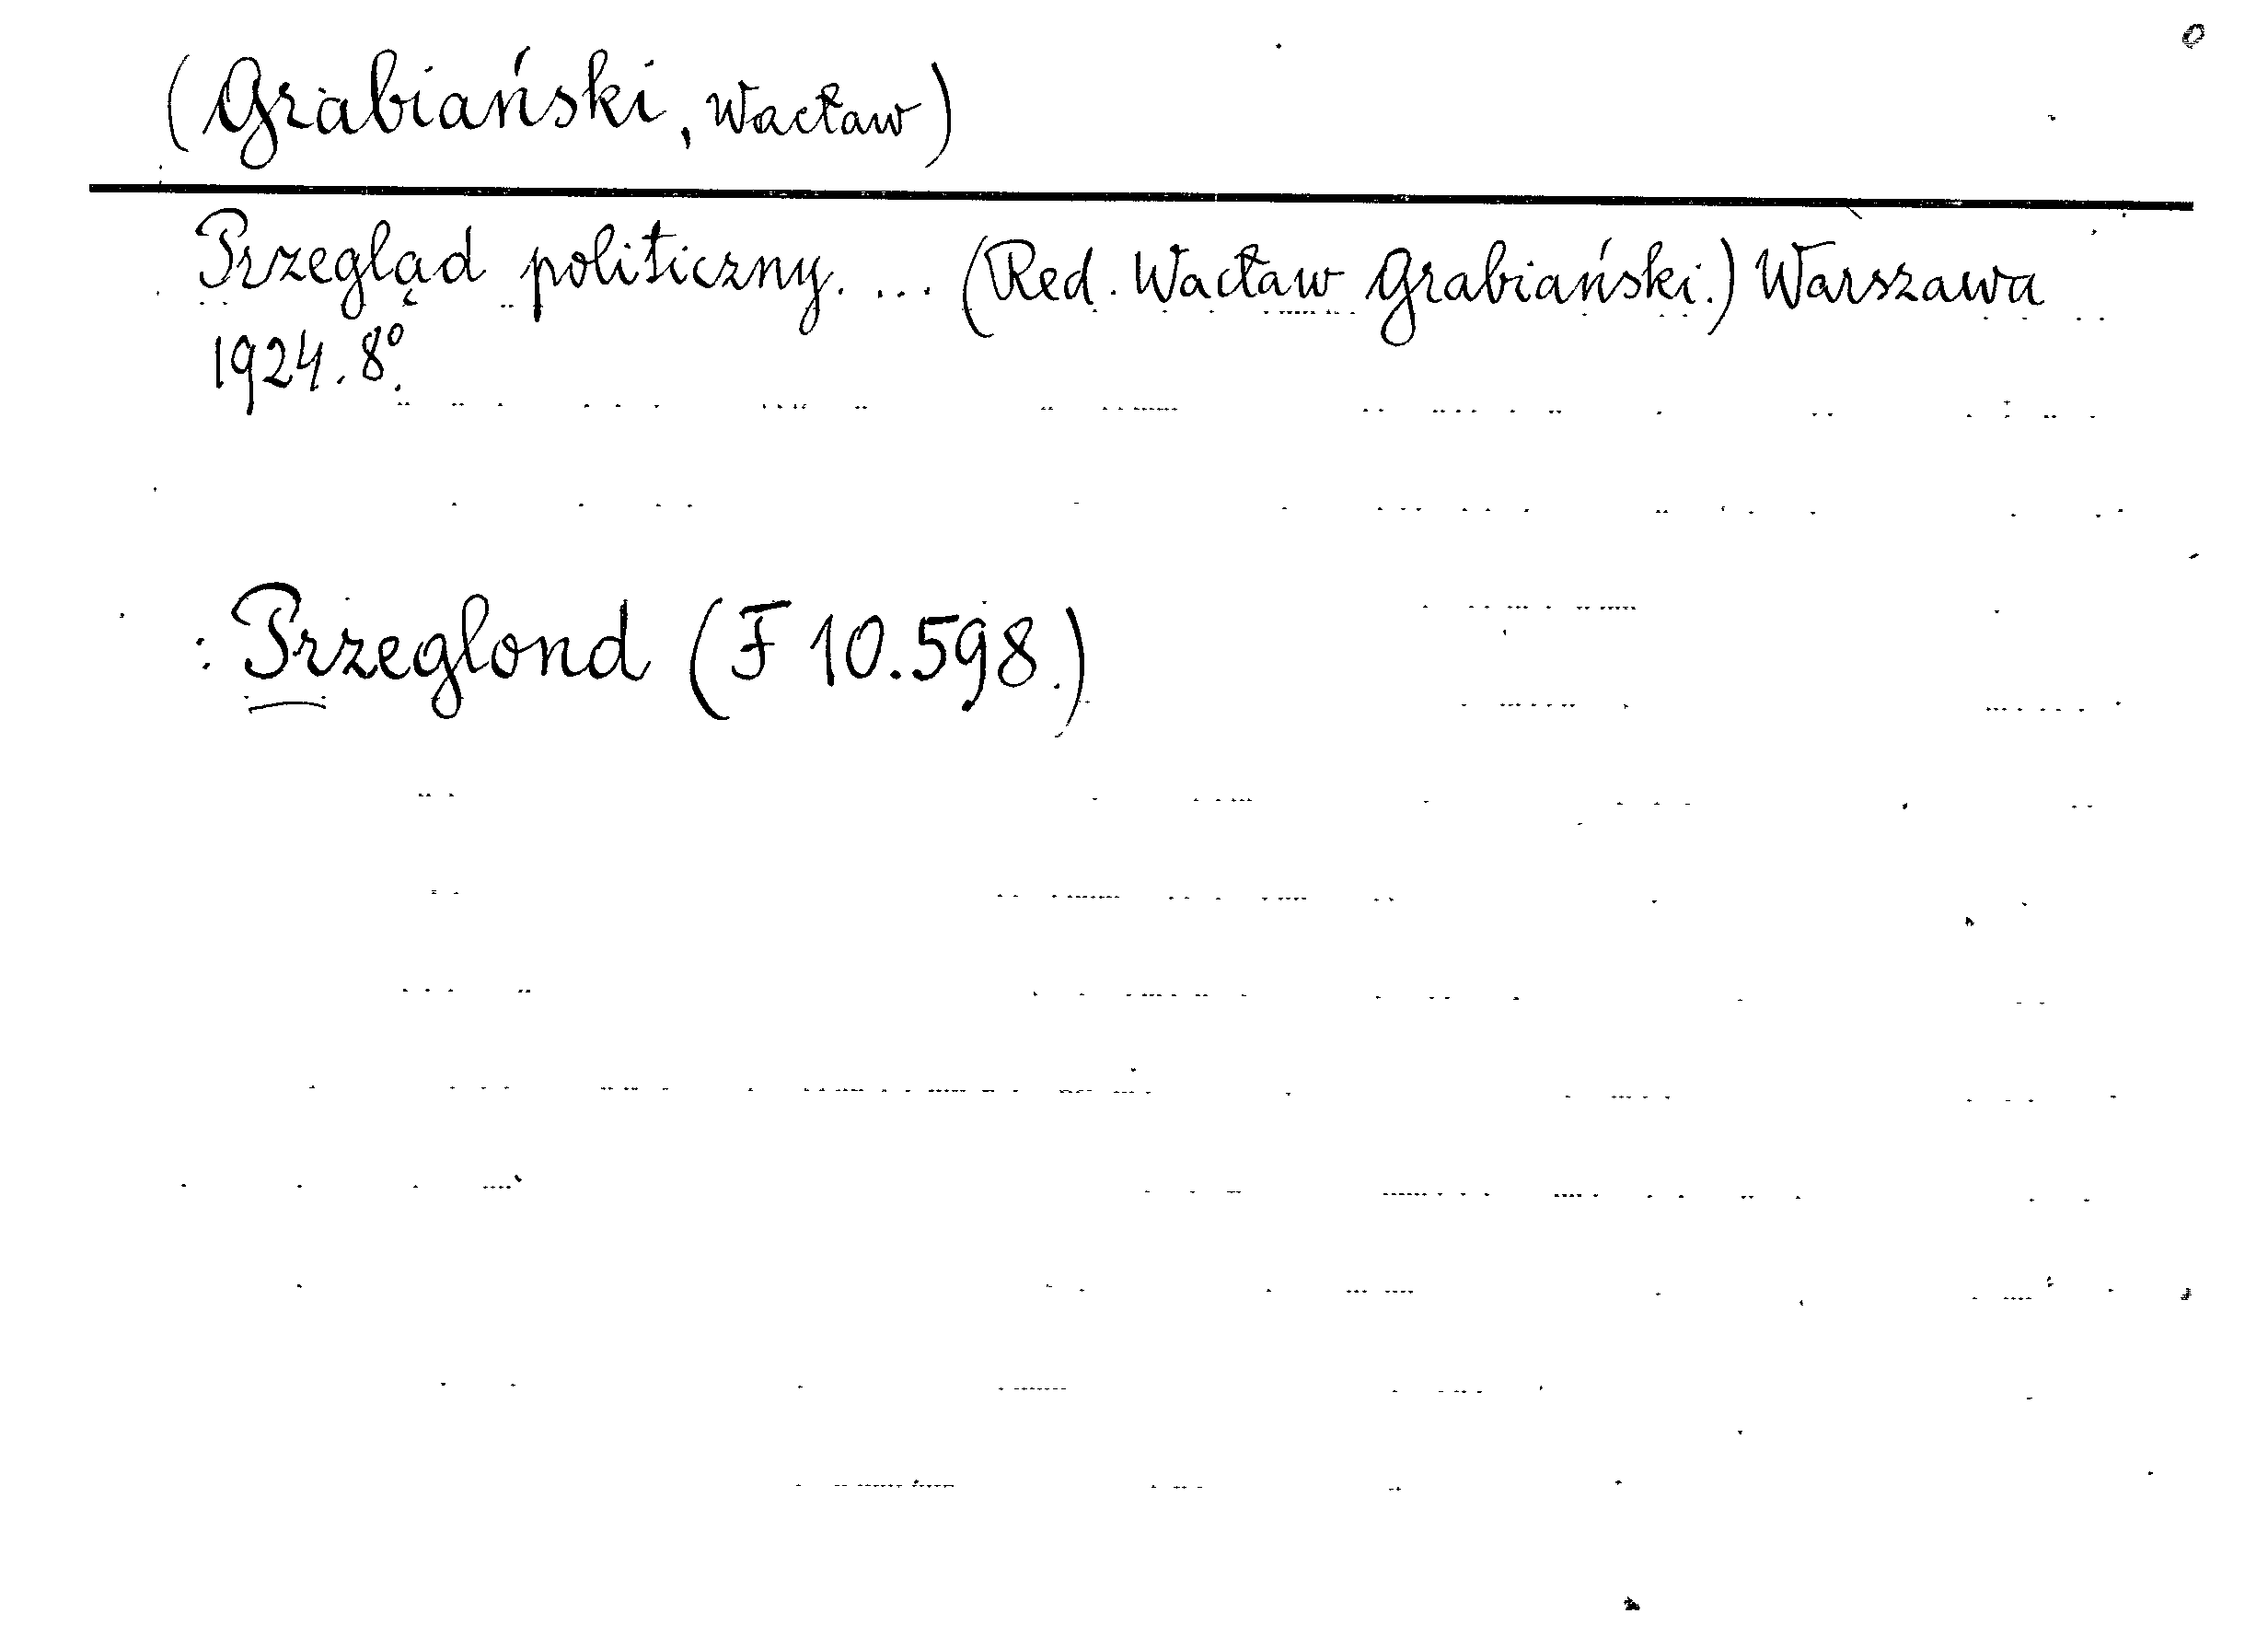 (Grabiański, Wacław)
Przegląd politiczny. ... (Red. Wacław Grabiański.) Warszawa
1924. 8º.
: Przeglond (F 10.598.)